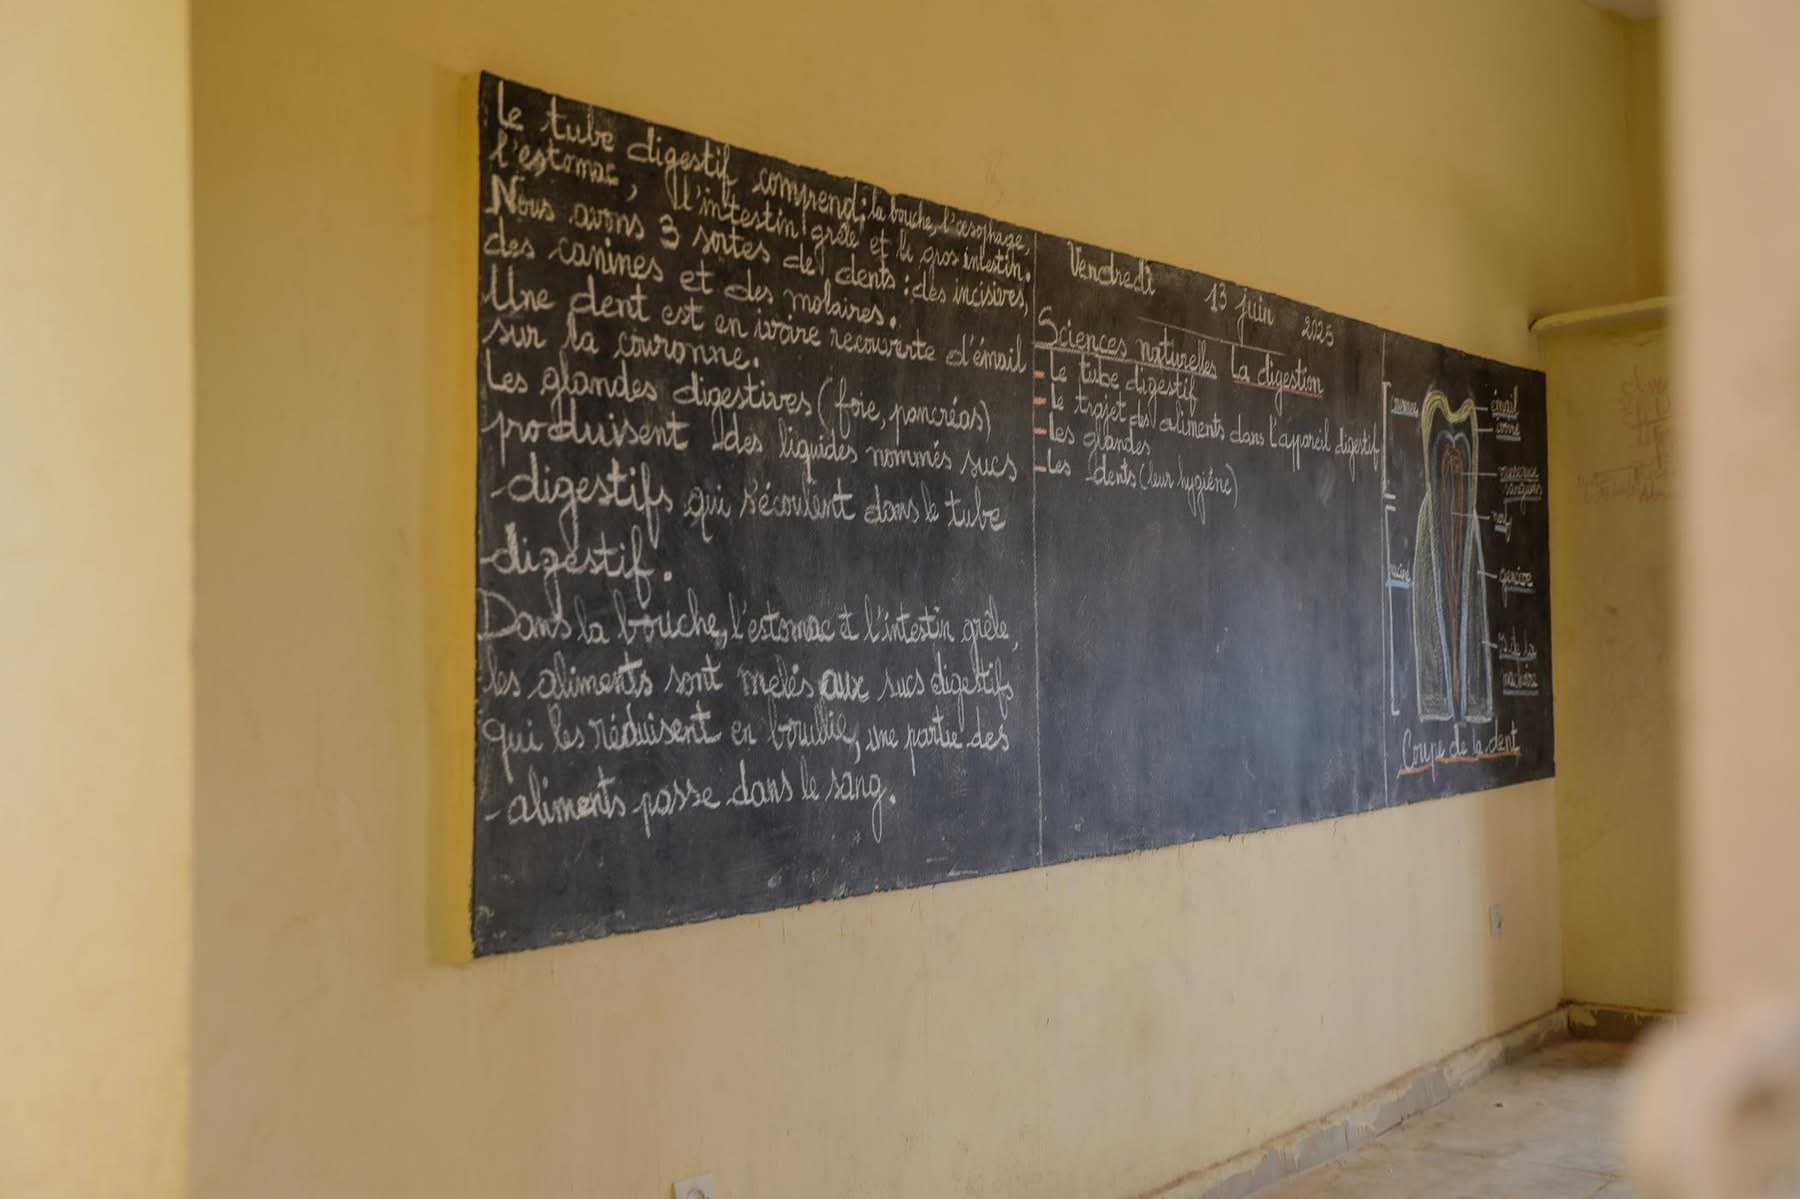 Le tube digestif comprend: la bouche, l'œsophage,
l'estomac, l'intestin grêle et le gros intestin.
Nous avons 3 sortes de dents: des incisives,
des canines et des molaires.
Une dent est en ivoire recouverte d'émail
sur la couronne.
Les glandes digestives (foie, pancréas)
produisent des liquides nommés sucs
digestifs qui s'écoulent dans le tube
digestif.
Dans la bouche, l'estomac et l'intestin grêle,
les aliments sont melés aux sucs digestifs
qui les réduisent en bouillie, une partie des
aliments passe dans le sang.
Vendredi 13 Juin 2025
Sciences naturelles La digestion
- Le tube digestif
- Le trajet des aliments dans l'appareil digestif
- Les glandes
- Les dents (leur hygiène)
émail
sanguins
nerf
gencive
racine
de la
machoire
Coupe de la dent